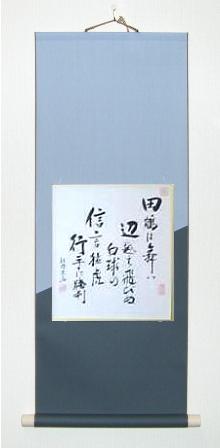 田鶴は舞い
辺越え飛びぬ
白球の
信号猛虎
行手に勝利